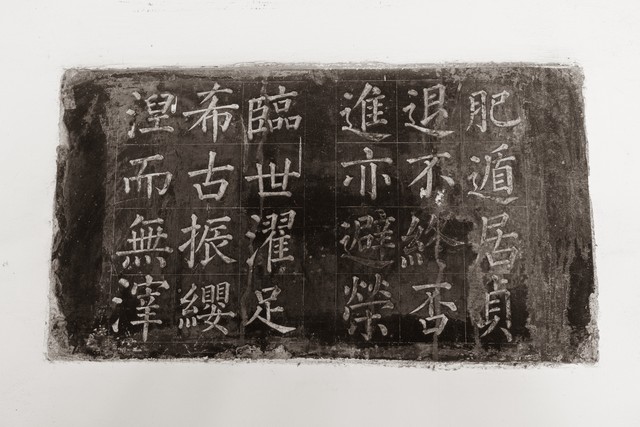 肥遁居貞
退不終否
進亦避榮
臨世濯足
希古振纓
涅而無滓